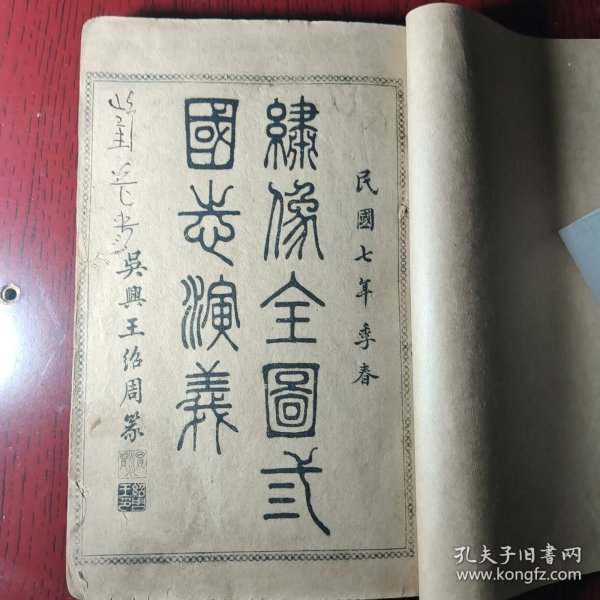 民國七年季春
繡像全圖弎
國志演義
吳興王紹周篆
孔夫子旧书网
www.kongfz.com